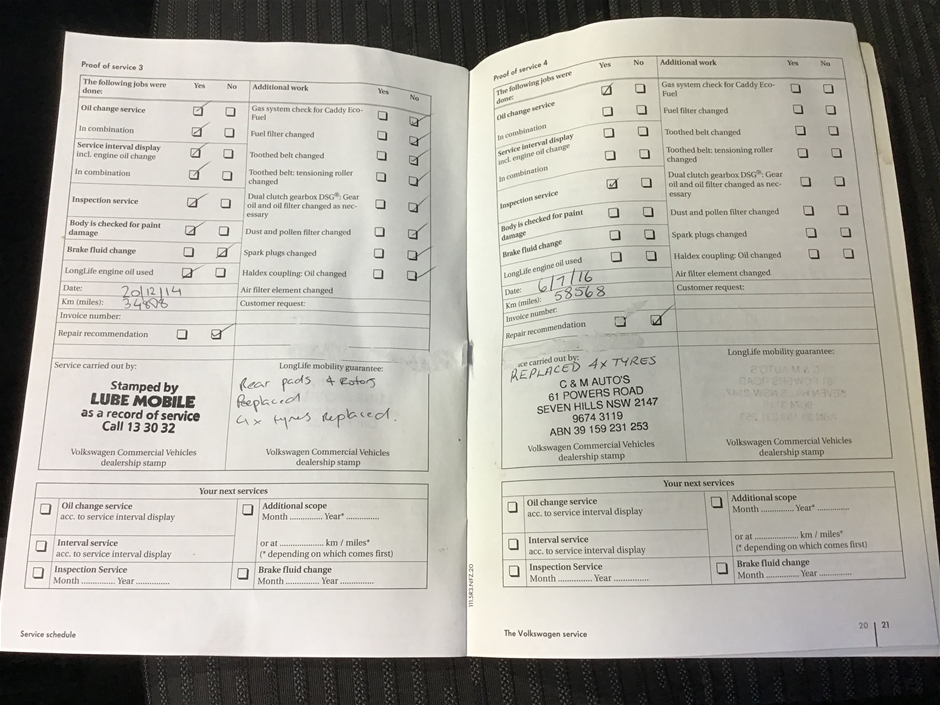 Proof of service 3
The following jobs were done:
Yes No
Additional work
Yes No
Oil change service
Gas system check for Caddy Eco-
Fuel
In combination
Fuel filter changed
Service interval display
incl. engine oil change
Toothed belt changed
In combination
Toothed belt: tensioning roller
changed
Inspection service
Dual clutch gearbox DSG®: Gear
oil and oil filter changed as nec-
essary
Body is checked for paint
damage
Dust and pollen filter changed
Brake fluid change
Spark plugs changed
LongLife engine oil used
Haldex coupling: Oil changed
Date: 20/12/14
Air filter element changed
Km (miles): 34808
Customer request:
Invoice number:
Repair recommendation
Service carried out by:
LongLife mobility guarantee:
Stamped by
LUBE MOBILE
as a record of service
Call 13 30 32
Rear pads & Rotors
Replaced
4x tyres Replaced.
Volkswagen Commercial Vehicles
dealership stamp
Volkswagen Commercial Vehicles
dealership stamp
Your next services
Oil change service
acc. to service interval display
Additional scope
Month ............. Year* .............
Interval service
acc. to service interval display
or at ................. km / miles*
(* depending on which comes first)
Inspection Service
Month ............. Year .............
Brake fluid change
Month ............. Year .............
Service schedule
111.5R3.NFZ.20
Proof of service 4
The following jobs were
done:
Yes No
Additional work
Yes No
Oil change service
Gas system check for Caddy Eco-
Fuel
In combination
Fuel filter changed
Service interval display
incl. engine oil change
Toothed belt changed
In combination
Toothed belt: tensioning roller
changed
Inspection service
Dual clutch gearbox DSG®: Gear
oil and oil filter changed as nec-
essary
Body is checked for paint
damage
Dust and pollen filter changed
Brake fluid change
Spark plugs changed
LongLife engine oil used
Haldex coupling: Oil changed
Date: 6/7/16
Air filter element changed
Km (miles): 58568
Customer request:
Invoice number:
Repair recommendation
ice carried out by:
LongLife mobility guarantee:
REPLACED 4X TYRES
C & M AUTO'S
61 POWERS ROAD
SEVEN HILLS NSW 2147
9674 3119
ABN 39 159 231 253
Volkswagen Commercial Vehicles
dealership stamp
Volkswagen Commercial Vehicles
dealership stamp
Your next services
Oil change service
acc. to service interval display
Additional scope
Month ............. Year* .............
Interval service
acc. to service interval display
or at ................. km / miles*
(* depending on which comes first)
Inspection Service
Month ............. Year .............
Brake fluid change
Month ............. Year .............
The Volkswagen service
20 | 21